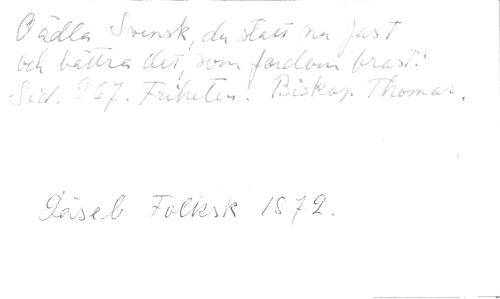 O ädla Svensk, du statt nu fast
och bättra det, som fordom brast."
Sid. 267. Friheten. Biskop Thomas.
Läseb Folksk 1872.